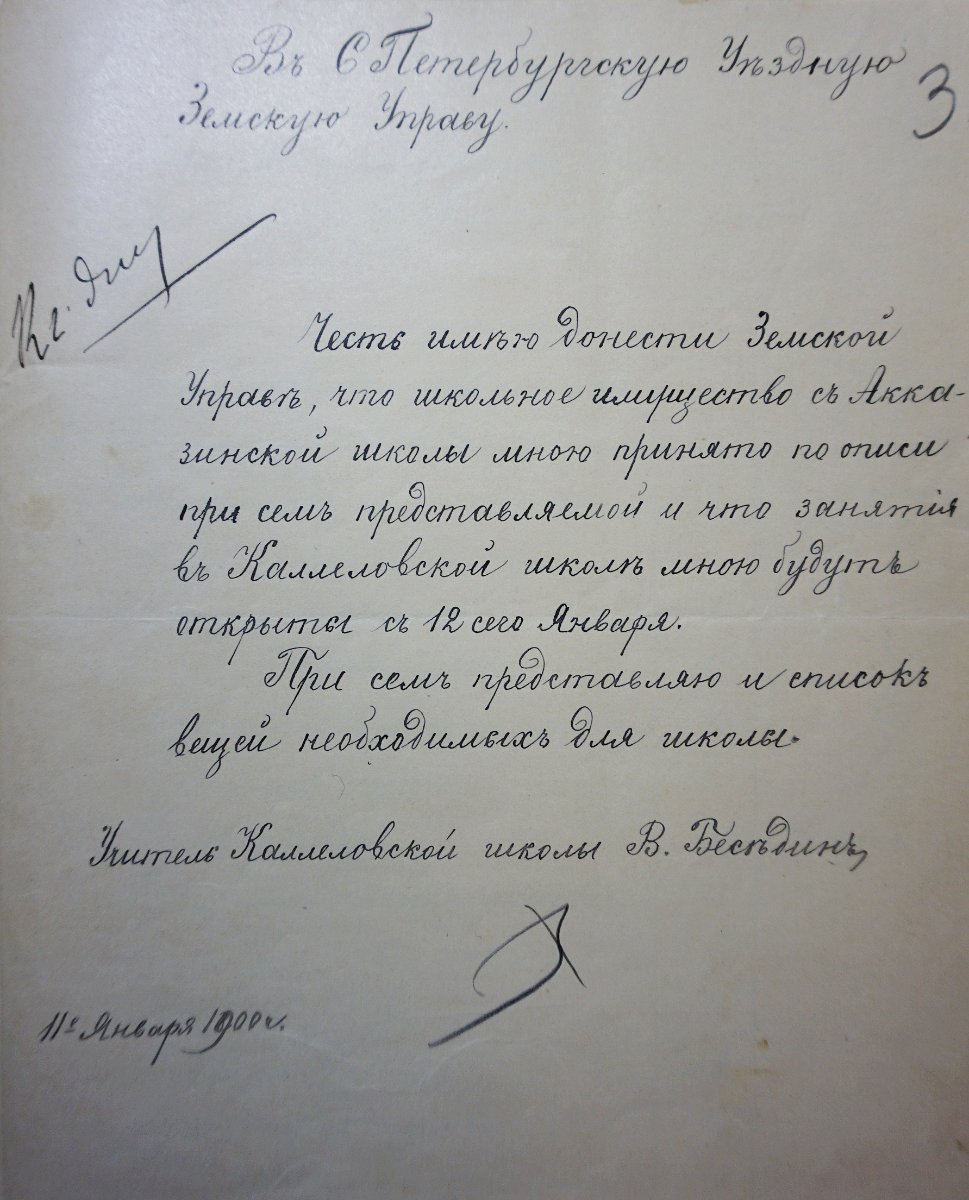 Въ С Петербургскую Уѣздную
3
Земскую Управу.
Честь имѣю донести Земской
Управѣ, что школьное имущество съ Акка-
зинской школы мною принято по описи
при семъ представляемой и что занятія
въ Каллеловской школѣ мною будутъ
открыты съ 12 сего Января.
При семъ представляю и списокъ
вещей необходимыхъ для школы.
Учитель Каллеловской школы В. Бесѣдинъ
11го Января 1900 г.